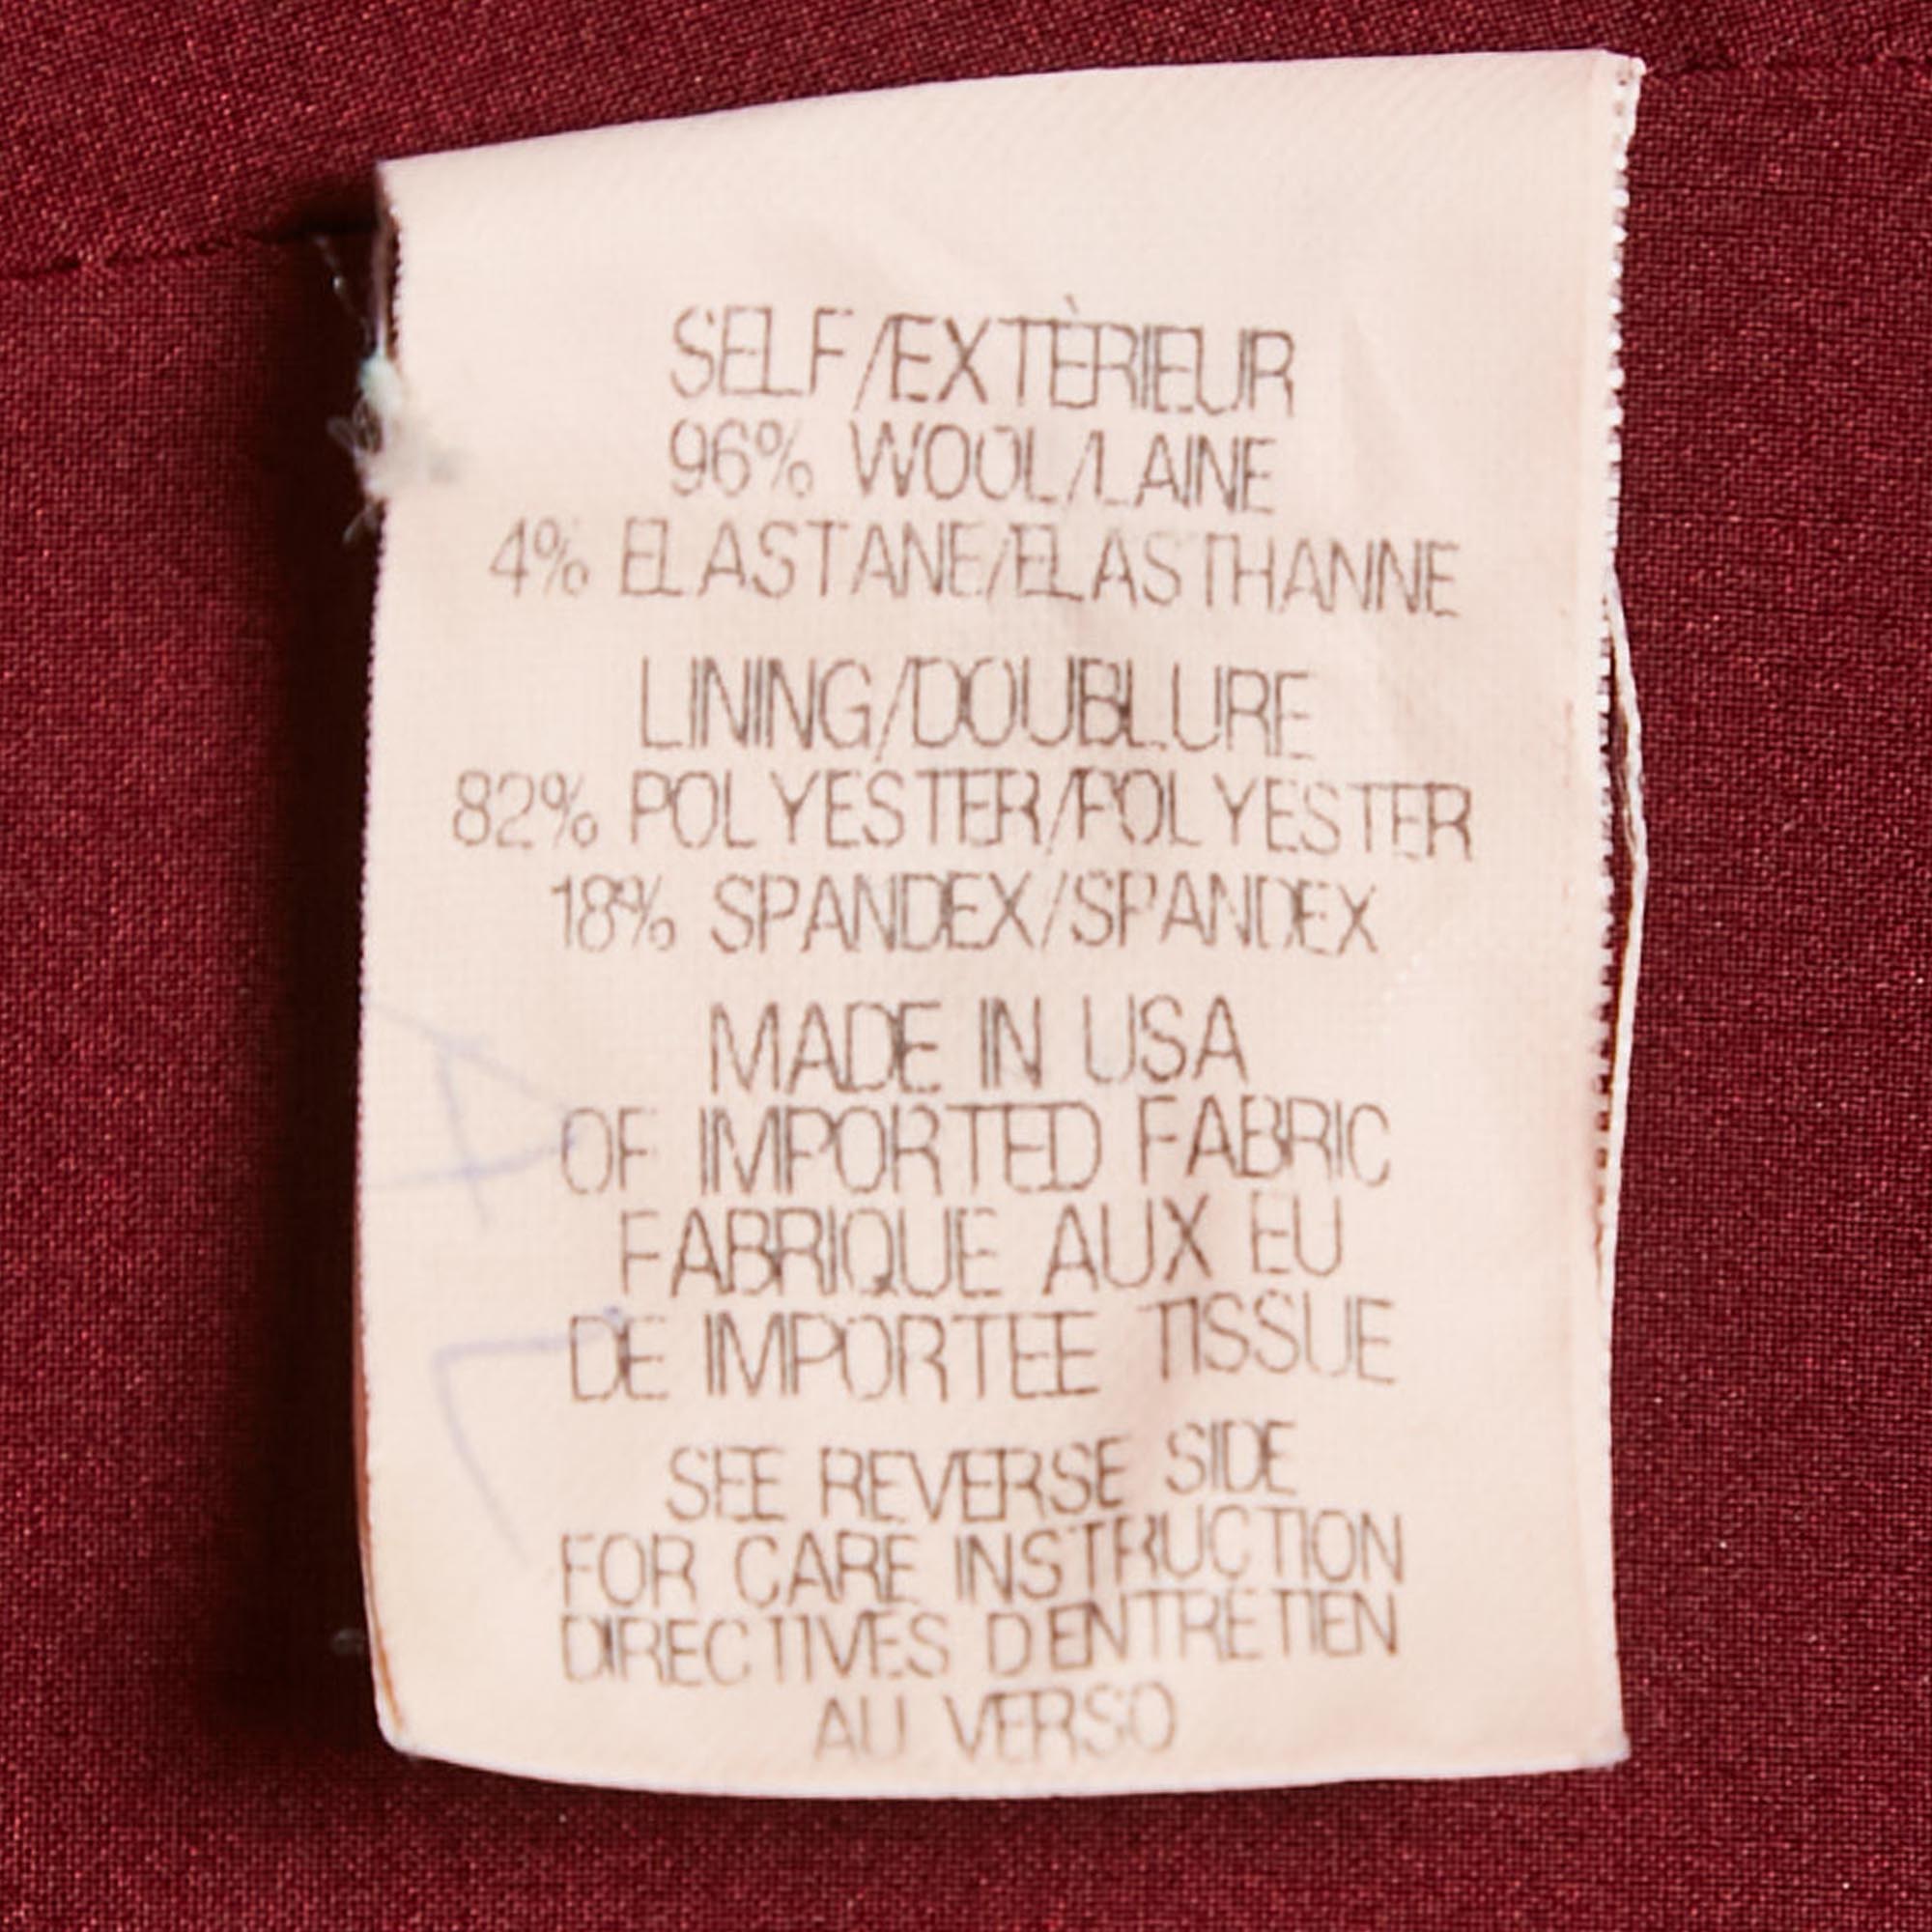 SELF/EXTÈRIEUR
96% WOOL/LAINE
4% ELASTANE/ELASTHANNE
LINING/DOUBLURE
82% POLYESTER/POLYESTER
18% SPANDEX/SPANDEX
MADE IN USA
OF IMPORTED FABRIC
FABRIQUE AUX EU
DE IMPORTEE TISSUE
SEE REVERSE SIDE
FOR CARE INSTRUCTION
DIRECTIVES D'ENTRETIEN
AU VERSO